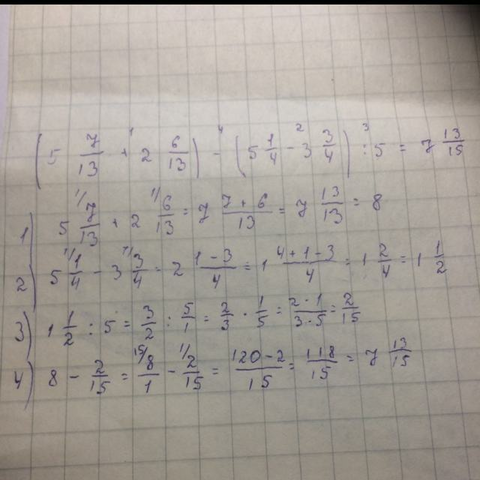 (5 7/13 +¹ 2 6/13) -⁴ (5 1/4 -² 3 3/4) :³ 5 = 7 13/15
1) 5 ¹/7/13 + 2 ¹/6/13 = 7 7+6/13 = 7 13/13 = 8
2) 5 ¹/1/4 - 3 ¹/3/4 = 2 1-3/4 = 1 4+1-3/4 = 1 2/4 = 1 1/2
3) 1 1/2 : 5 = 3/2 : 5/1 = 2/3 · 1/5 = 2·1/3·5 = 2/15
4) 8 - 2/15 = ¹⁵/8/1 - ¹/2/15 = 120-2/15 = 118/15 = 7 13/15